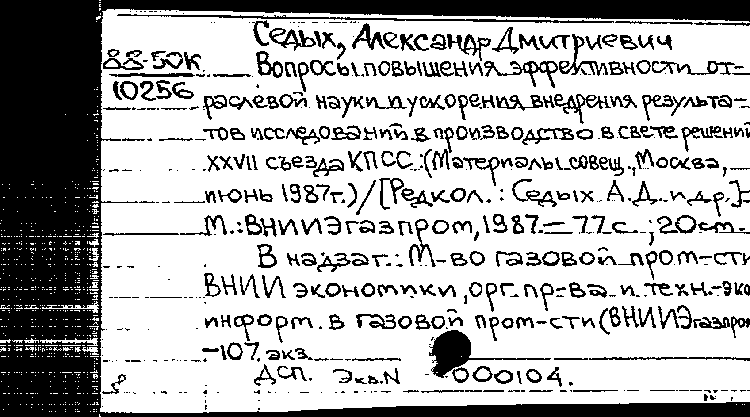 Седых, Александр Дмитриевич
88-50К
10256
Вопросы повышения эффективности от-
раслевой науки и ускорения внедрения результа-
тов исследований в производство в свете решений
XXVII съезда КПСС: (Материалы совещ., Москва,
июнь 1987г.) / [Редкол.: Седых А.Д. и др.].-
М.: ВНИИЭгазпром, 1987.- 77с.; 20см.-
В надзаг.: М-во газовой пром-сти
ВНИИ экономики, орг. пр-ва и техн.-эко
информ. в газовой пром-сти (ВНИИЭгазпром
-107. экз.
ДСП. Экз.N 000104.